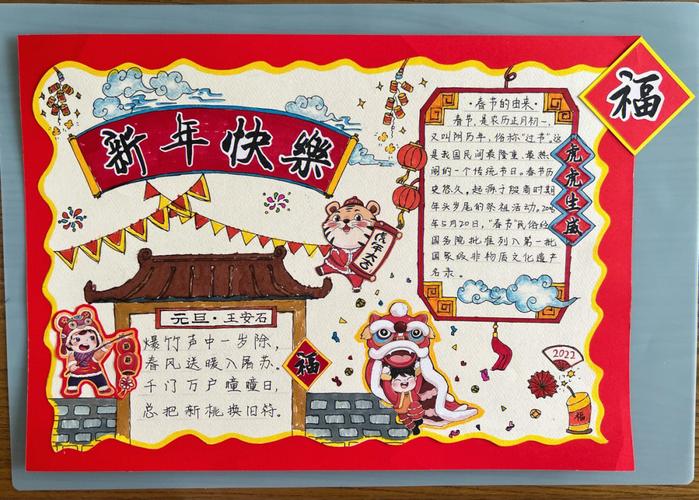 新年快樂
福
·春节的由来·
春节,是农历正月初一,
又叫阴历年,俗称"过节",这
是我国民间最隆重、最热
闹的一个传统节日。春节历
史悠久,起源于殷商时期
年头岁尾的祭祖活动。2006
年5月20日,"春节"民俗经
国务院批准列入第一批
国家级非物质文化遗产
名录。
虎虎生威
虎年大吉
元旦·王安石
爆竹声中一岁除,
春风送暖入屠苏。
千门万户曈曈日,
总把新桃换旧符。
福
2022
福